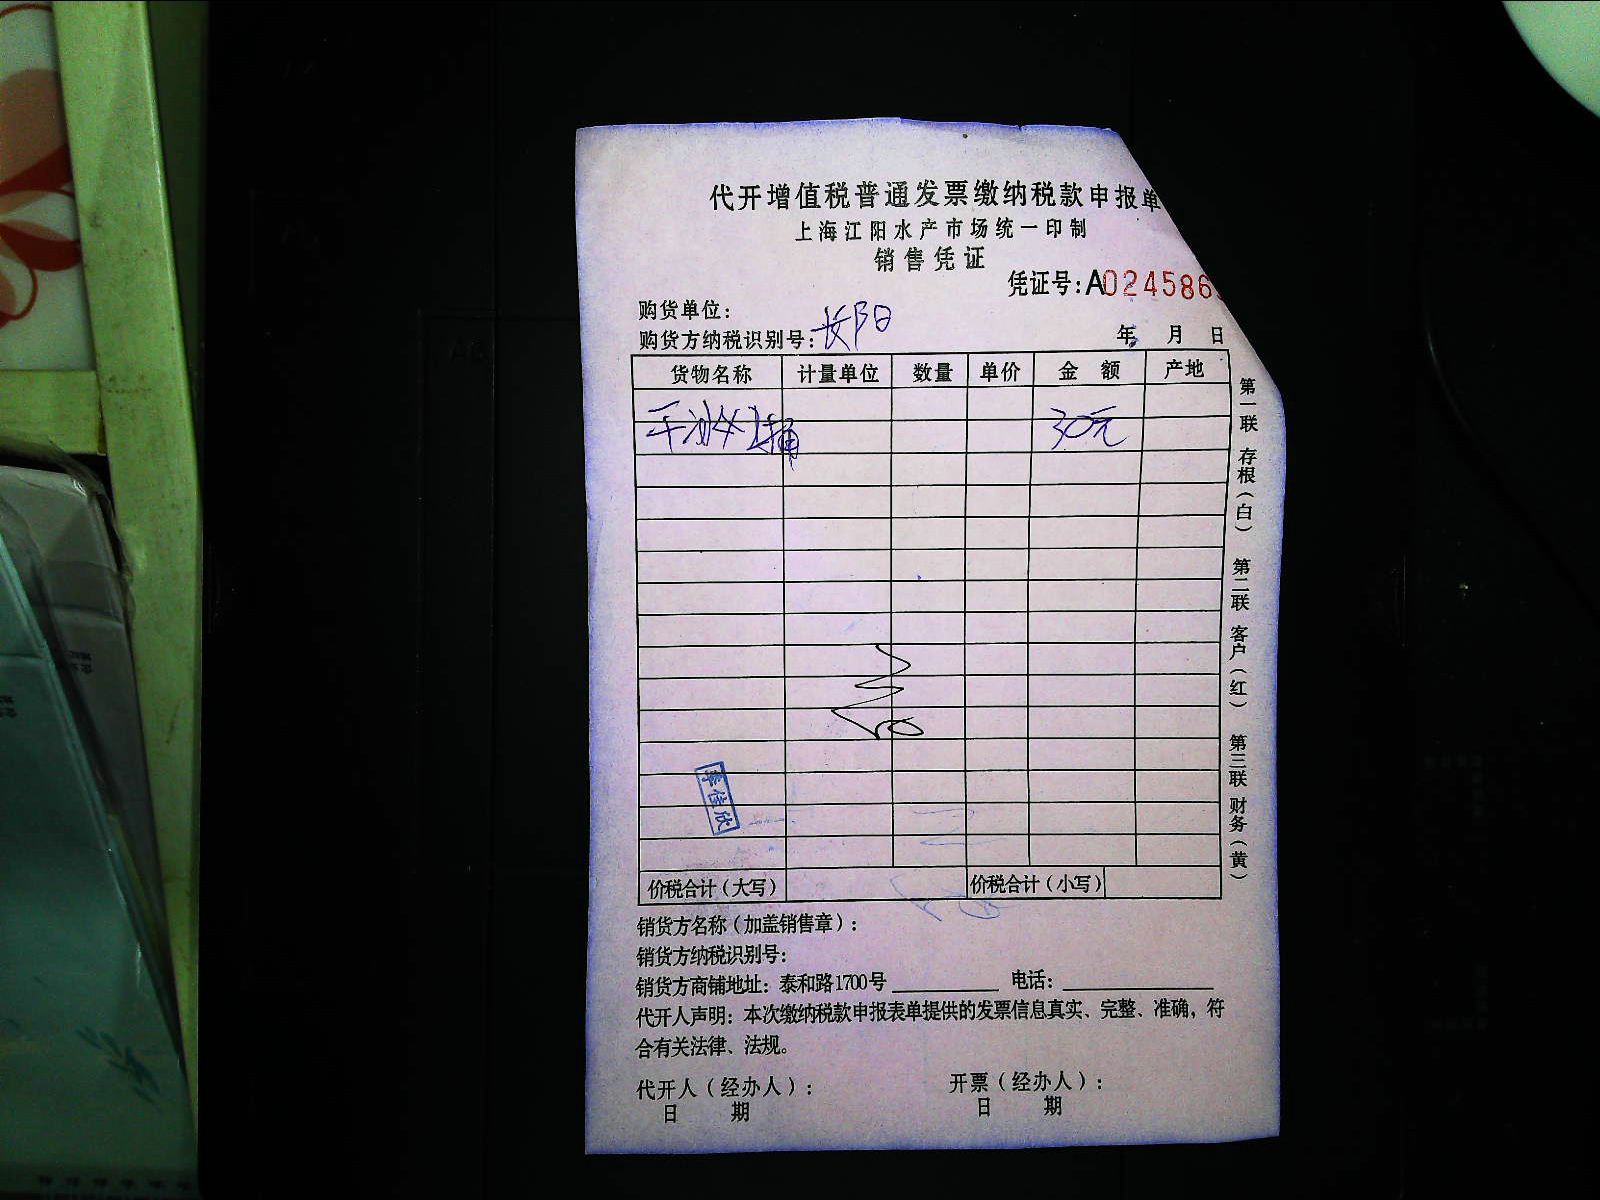 代开增值税普通发票缴纳税款申报单
上海江阳水产市场统一印制
销售凭证
凭证号:A024586
购货单位:
购货方纳税识别号: 长阳
年 月 日
货物名称 计量单位 数量 单价 金 额 产地
30元
李佳欣
价税合计（大写） 价税合计（小写）
销货方名称（加盖销售章）:
销货方纳税识别号:
销货方商铺地址: 泰和路1700号 电话:
代开人声明: 本次缴纳税款申报表单提供的发票信息真实、完整、准确，符
合有关法律、法规。
代开人（经办人）: 开票（经办人）:
日 期 日 期
第一联 存根（白） 第二联 客户（红） 第三联 财务（黄）